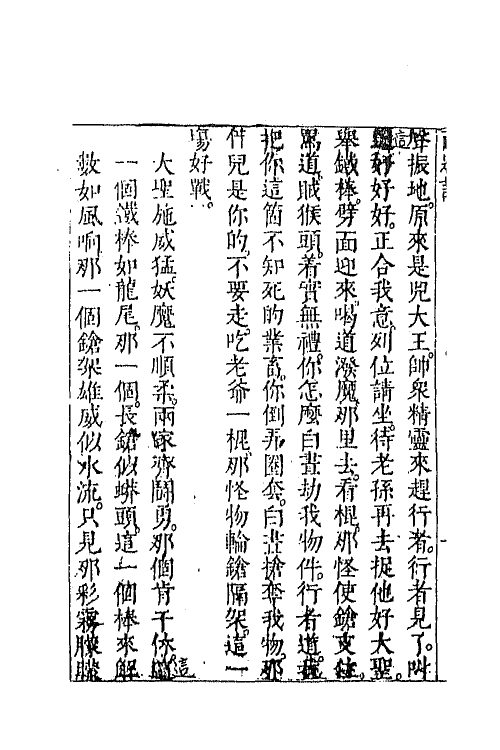 聲振地。原來是兕大王。帥衆精靈來趕行者。行者見了。叫
好好好。正合我意。列位請坐。待老孫再去捉他好大聖。
舉鐵棒。劈面迎來。喝道潑魔。那里去。看棍。那怪使鎗支住。
罵道。賊猴頭。着實無禮。你怎麼白晝劫我物件。行者道。我
把你這箇不知死的業畜。你倒弄圈套。白晝搶奪我物。那
件兒是你的。不要走。吃老爺一棍。那怪物輪鎗隔架。這一
場好戰。
大聖施威猛。妖魔不順柔。兩家齊鬪勇。那個肯干休。這
一個鐵棒如龍尾。那一個。長鎗似蟒頭。這一個棒來解
數如風响。那一個鎗架雄威似水流。只見那彩霧朦朧